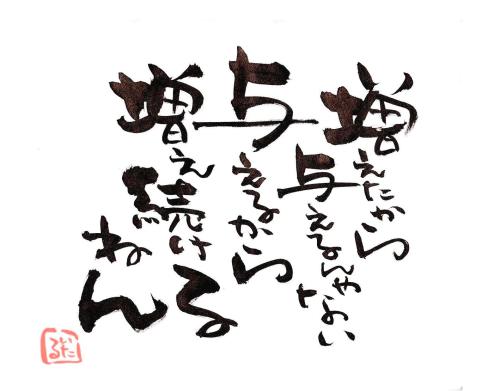 増えたから
与えるんやない
与えるから
増え続け
るねん